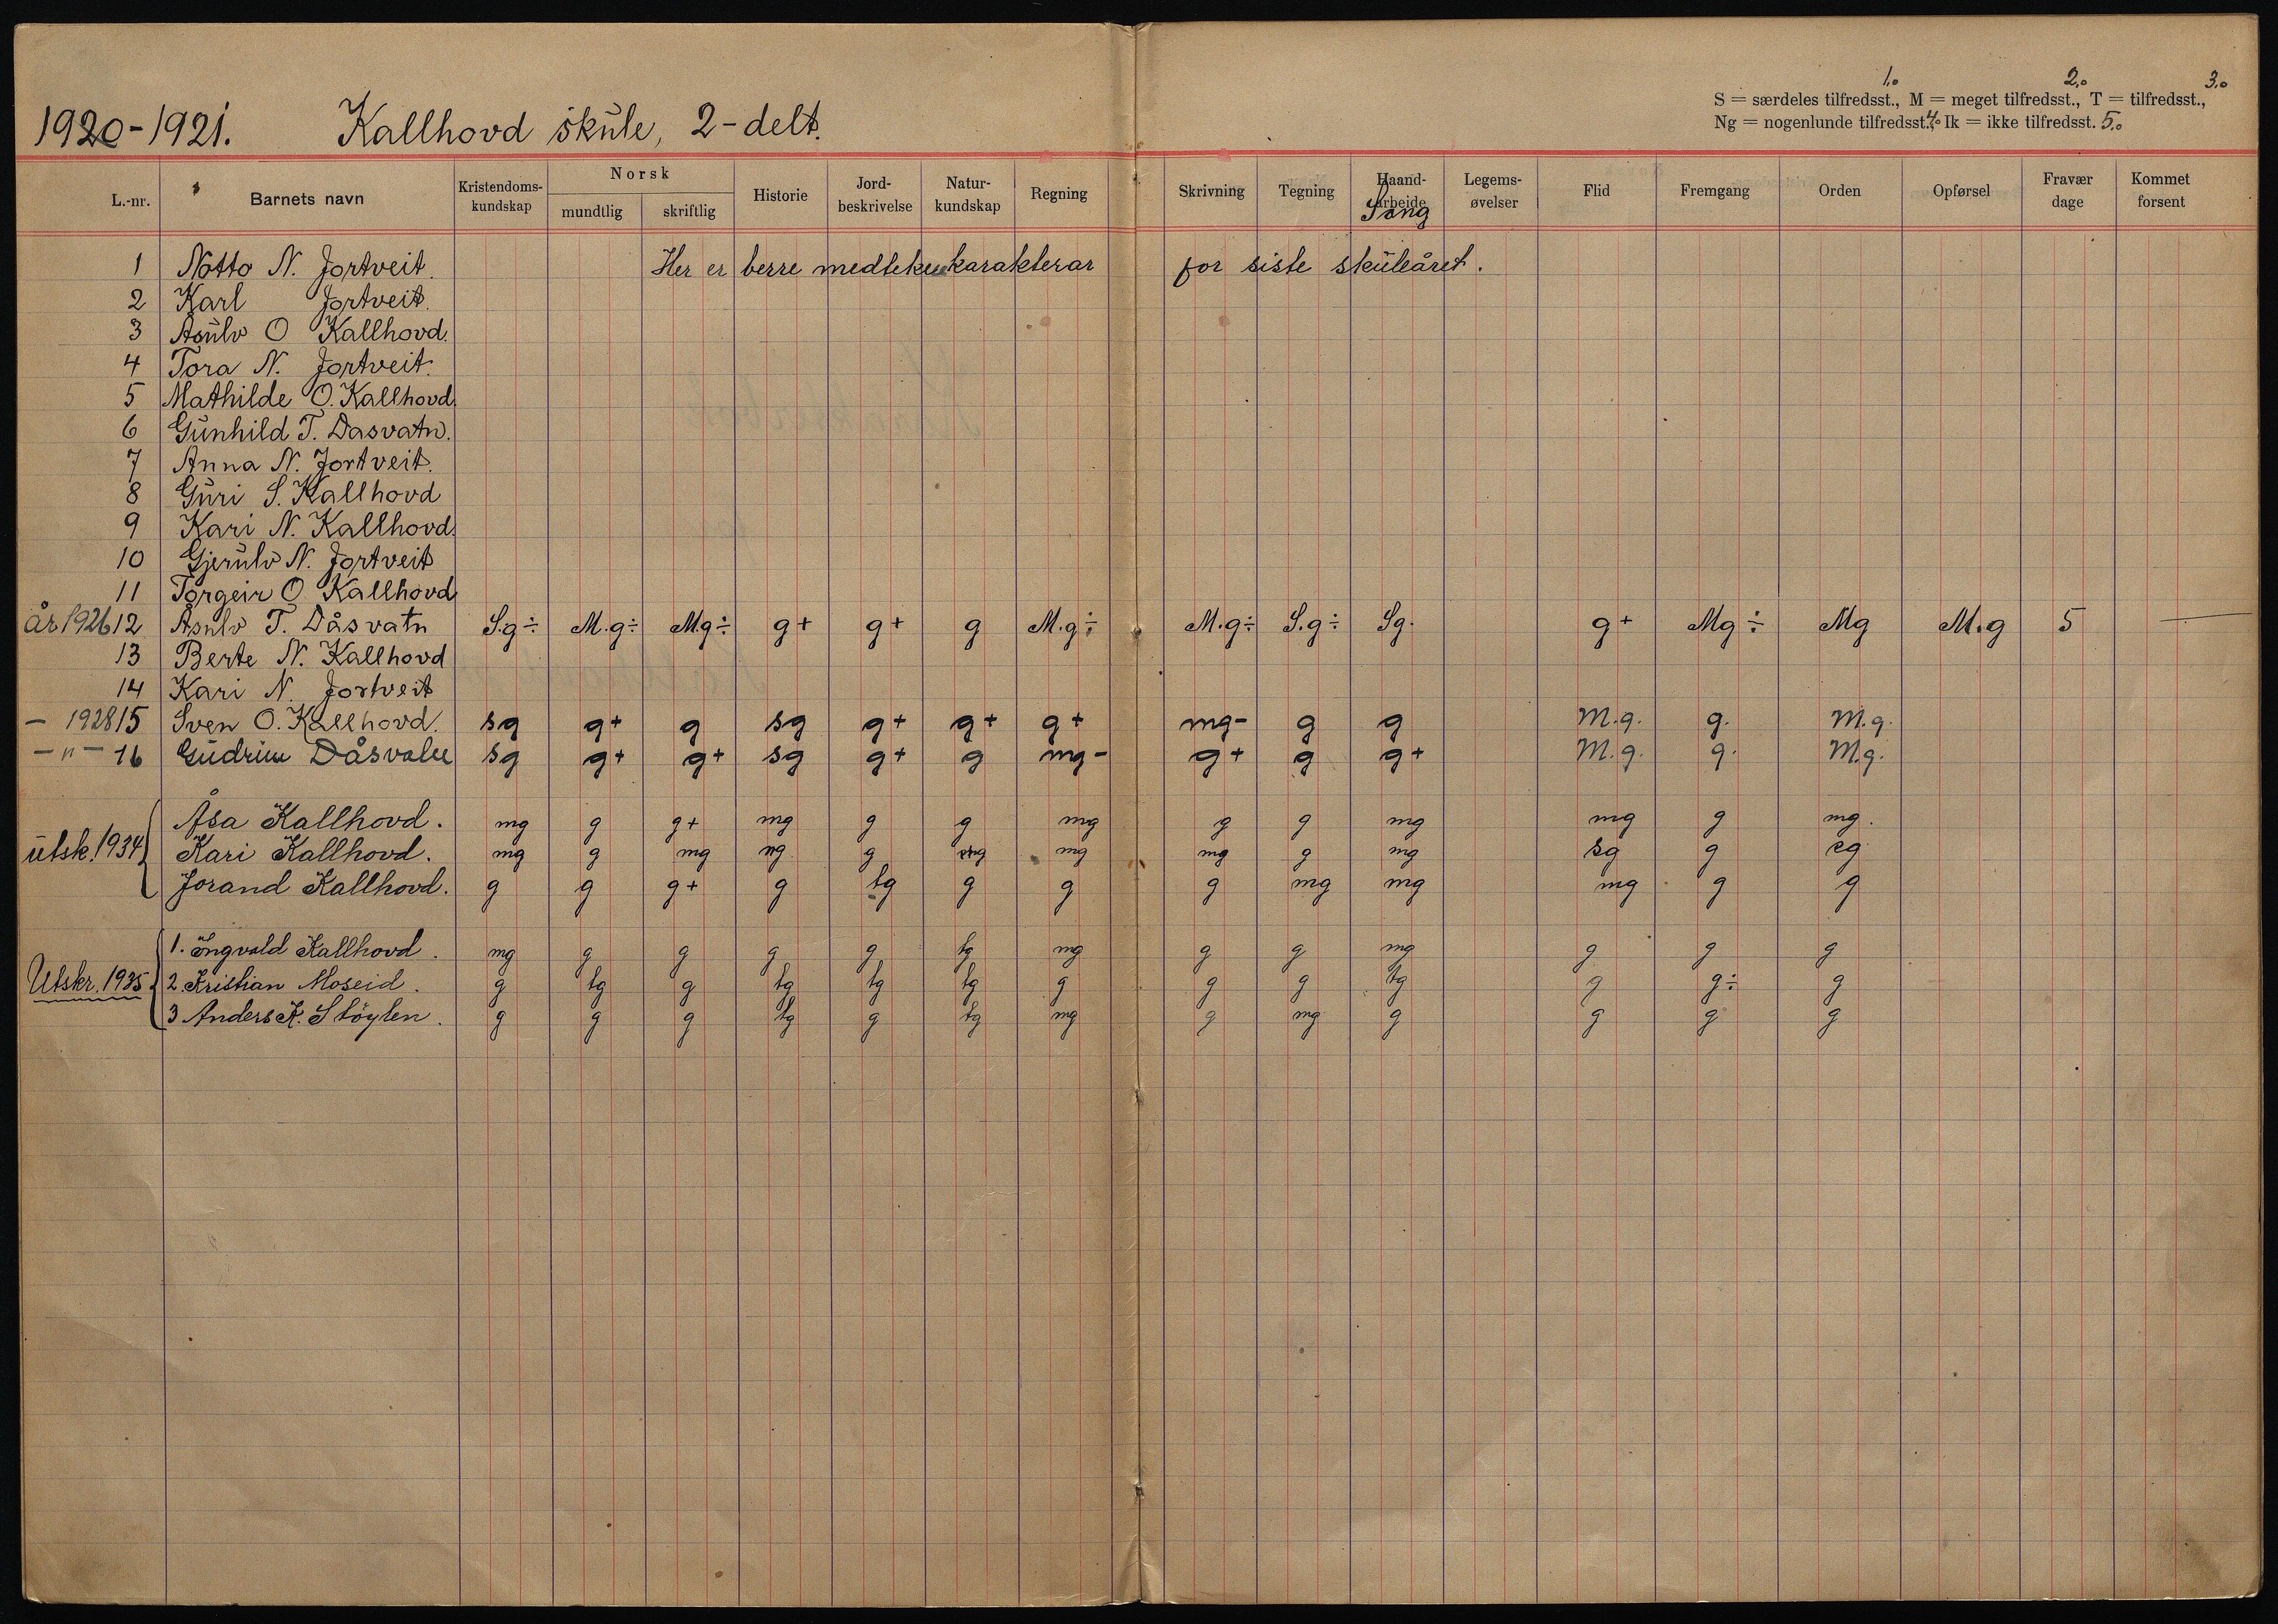 1.0 2.0 3.0
S = særdeles tilfredsst., M = meget tilfredsst., T = tilfredsst.,
Ng = nogenlunde tilfredsst., 4.0 Ik = ikke tilfredsst. 5.0
1920-1921. Kallhovd skule, 2-delt.
L.-nr. Barnets navn Kristendoms-kundskap Norsk mundtlig skriftlig Historie Jord-beskrivelse Natur-kundskap Regning Skrivning Tegning Haand-arbeide Song Legems-øvelser Flid Fremgang Orden Opførsel Fravær dage Kommet forsent
1 Notto N. Jortveit. Her er berre medteke karakterar for siste skuleåret.
2 Karl Jortveit.
3 Asulv O Kallhovd.
4 Tora N. Jortveit.
5 Mathilde O. Kallhovd.
6 Gunhild T. Dasvatn.
7 Anna N. Jortveit.
8 Guri S. Kallhovd
9 Kari N. Kallhovd.
10 Gjerulv N. Jortveit
11 Torgeir O Kallhovd
år 1926 12 Åsulv T. Dåsvatn S.g÷ M.g÷ M.g÷ g+ g+ g M.g÷ M.g÷ S.g÷ Sg. g+ Mg÷ Mg M.g 5 —
13 Berte N. Kallhovd
14 Kari N. Jortveit
— 1928 15 Sven O. Kallhovd. sg g+ g sg g+ g+ g+ mg- g g M.g. g. M.g.
—"— 16 Gudrun Dåsvatn sg g+ g+ sg g+ g mg- g+ g g+ M.g. g. M.g.
utsk. 1934
Åsa Kallhovd. mg g g+ mg g g mg g g mg mg g mg.
Kari Kallhovd. mg g mg mg g mg mg g mg sg g sg
Jorand Kallhovd. g g g+ g tg g g g mg mg mg g g
Utskr. 1935
1. Ingvald Kallhovd. mg g g g g tg mg g g mg g g g
2. Kristian Moseid. g tg g tg tg tg g g g tg g g÷ g
3 Anders K. Støylen. g g g tg g tg mg g mg g g g g